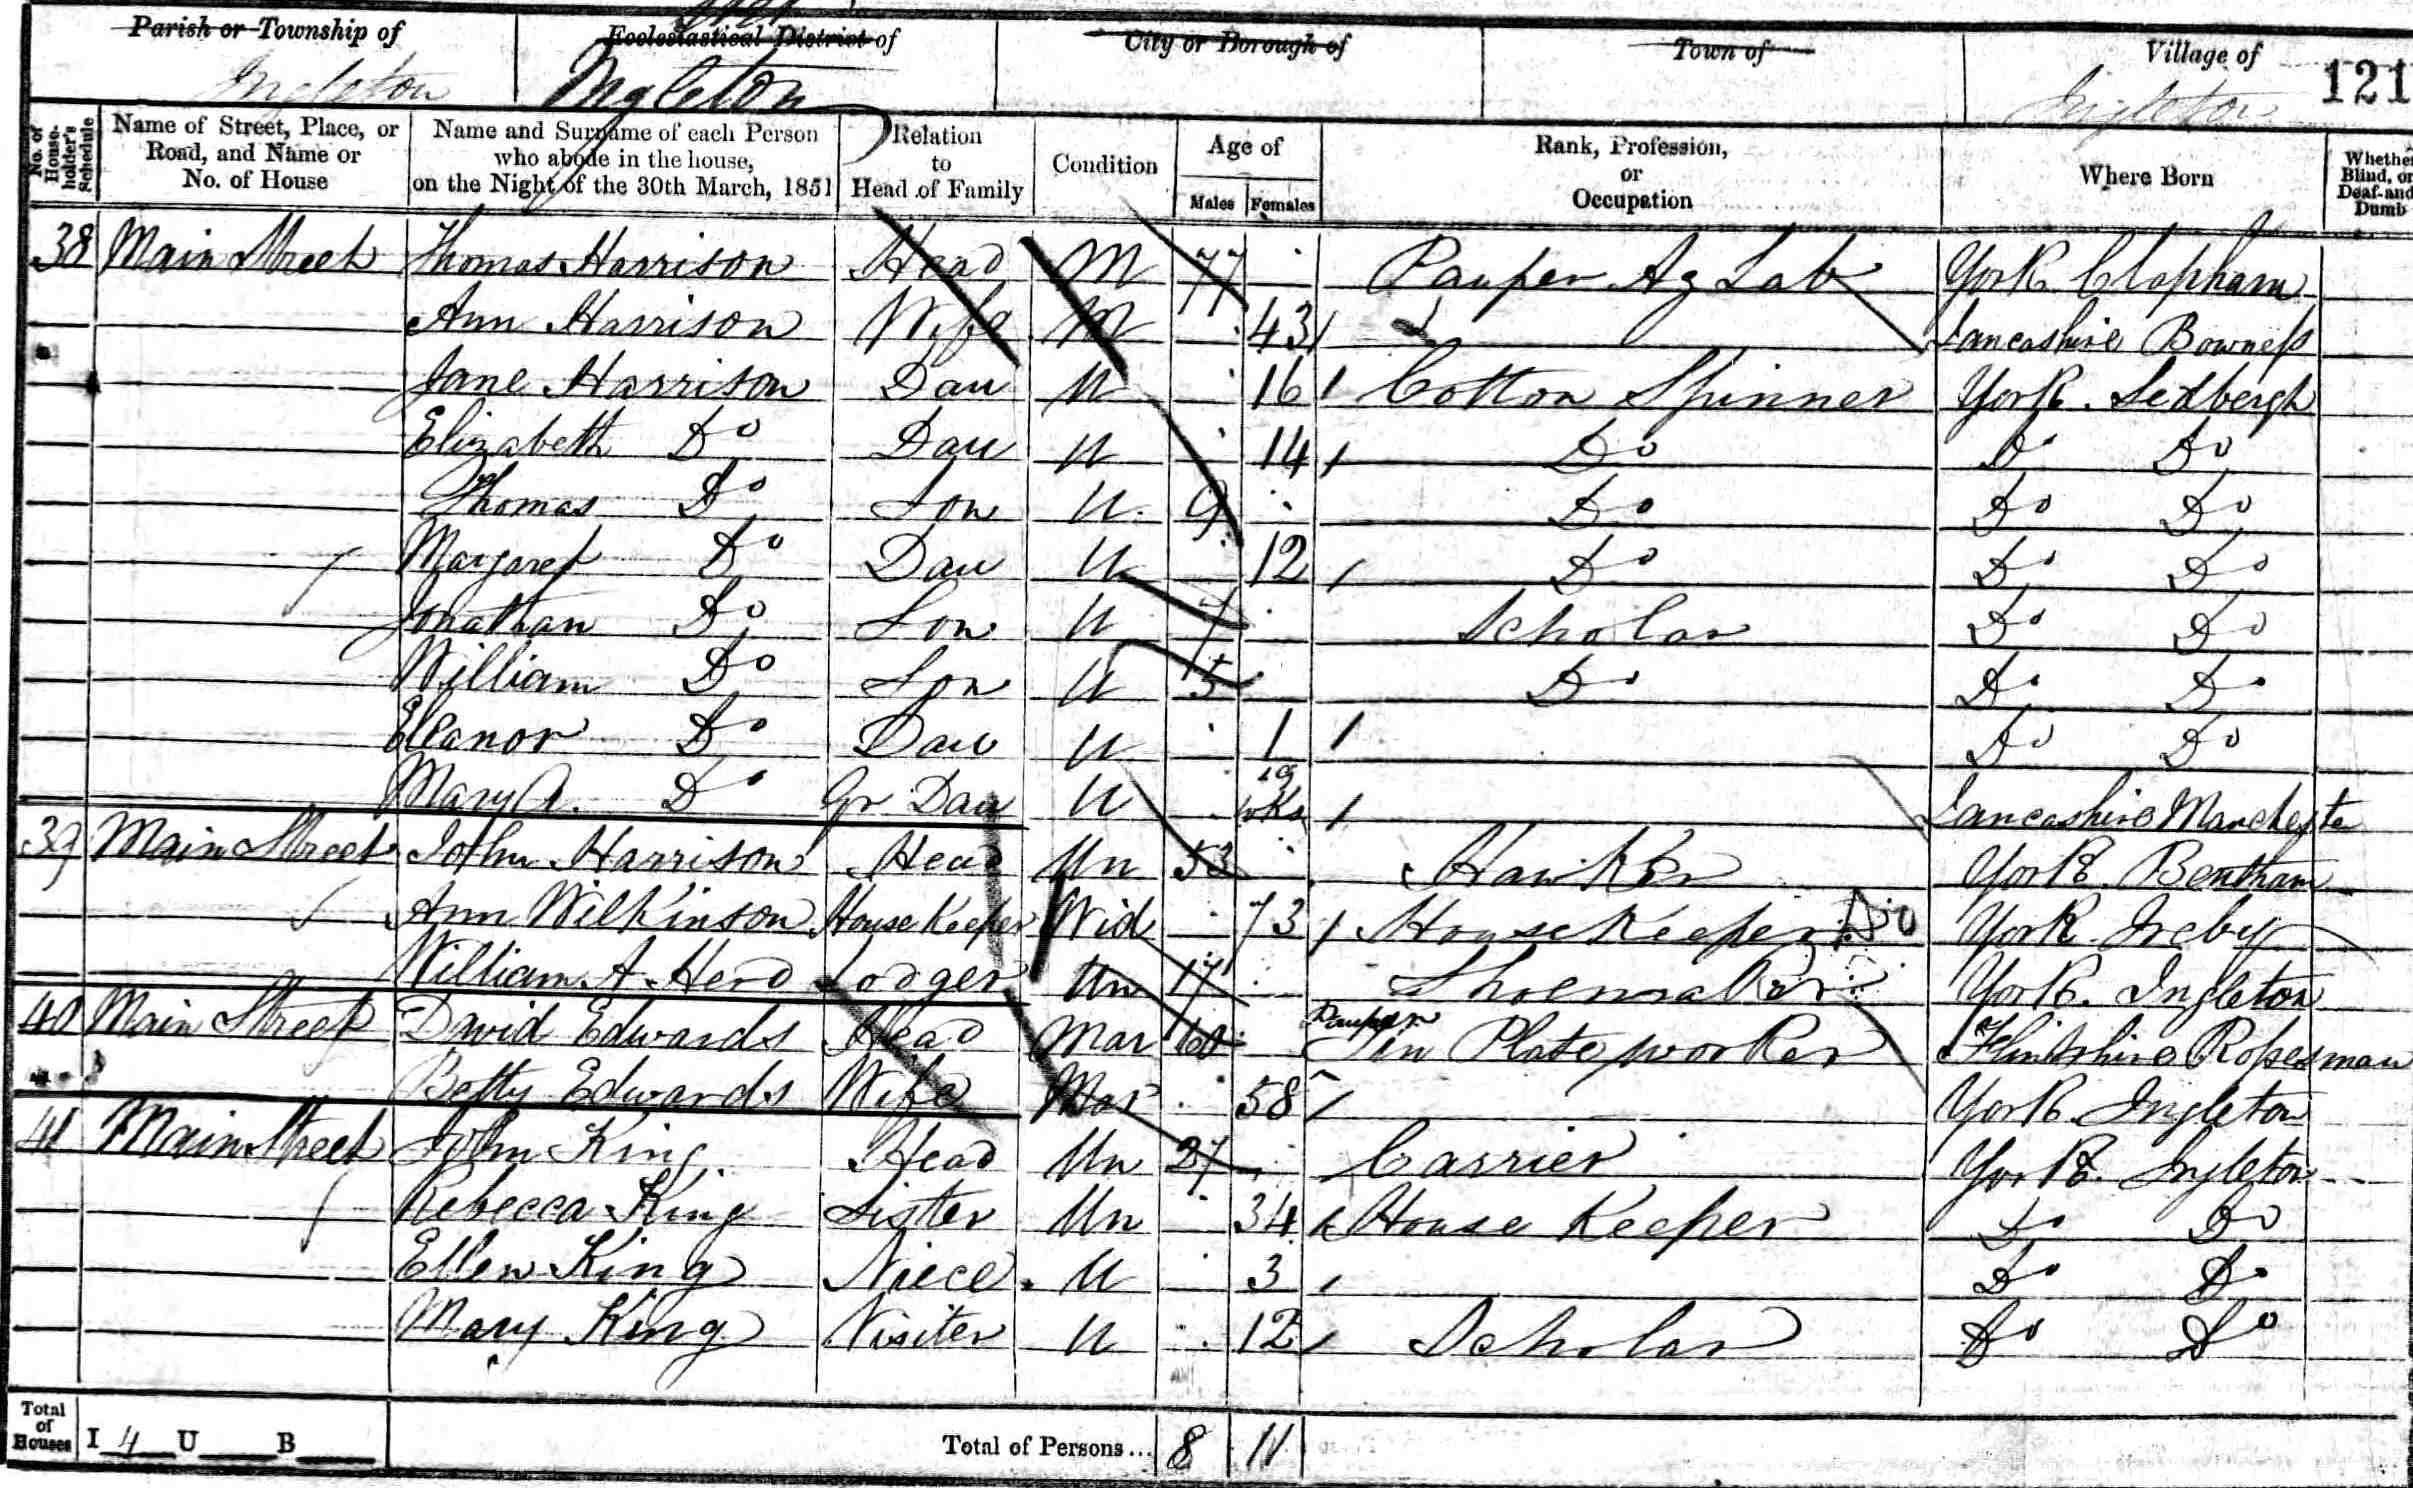 Parish or Township of Ecclesiastical District of City or Borough of Town of Village of
Ingleton Ingleton Ingleton 121
No. of House-holder's Schedule Name of Street, Place, or Road, and Name or No. of House Name and Surname of each Person who abode in the house, on the Night of the 30th March, 1851 Relation to Head of Family Condition Age of Males Females Rank, Profession, or Occupation Where Born Whether Blind, or Deaf-and Dumb
38 Main Street Thomas Harrison Head M 77 Pauper Ag Lab York Clapham
Ann Harrison Wife M 43 Lancashire Bowness
Jane Harrison Dau U 16 Cotton Spinner York. Sedbergh
Elizabeth Do Dau U 14 Do Do Do
Thomas Do Son U 9 Do Do Do
Margaret Do Dau U 12 Do Do Do
Jonathan Do Son U 7 Scholar Do Do
William Do Son U 5 Do Do Do
Eleanor Do Dau U 1 Do Do
Mary A. Do Gr Dau U wks Lancashire Manchester
39 Main Street John Harrison Head Un 53 Hawker York. Bentham
Ann Wilkinson House Keeper Wid 73 House Keeper York Ireby
William A. Herd Lodger Un 17 Shoemaker York. Ingleton
40 Main Street David Edwards Head Mar 60 Pauper Tin Plate worker Flintshire
Betty Edwards Wife Mar 58 York. Ingleton
41 Main Street John King Head Un 27 Carrier York. Ingleton
Rebecca King Sister Un 34 House Keeper Do Do
Ellen King Niece U 3 Do Do
Mary King Visiter U 12 Scholar Do Do
Total of Houses I 4 U B Total of Persons... 8 11